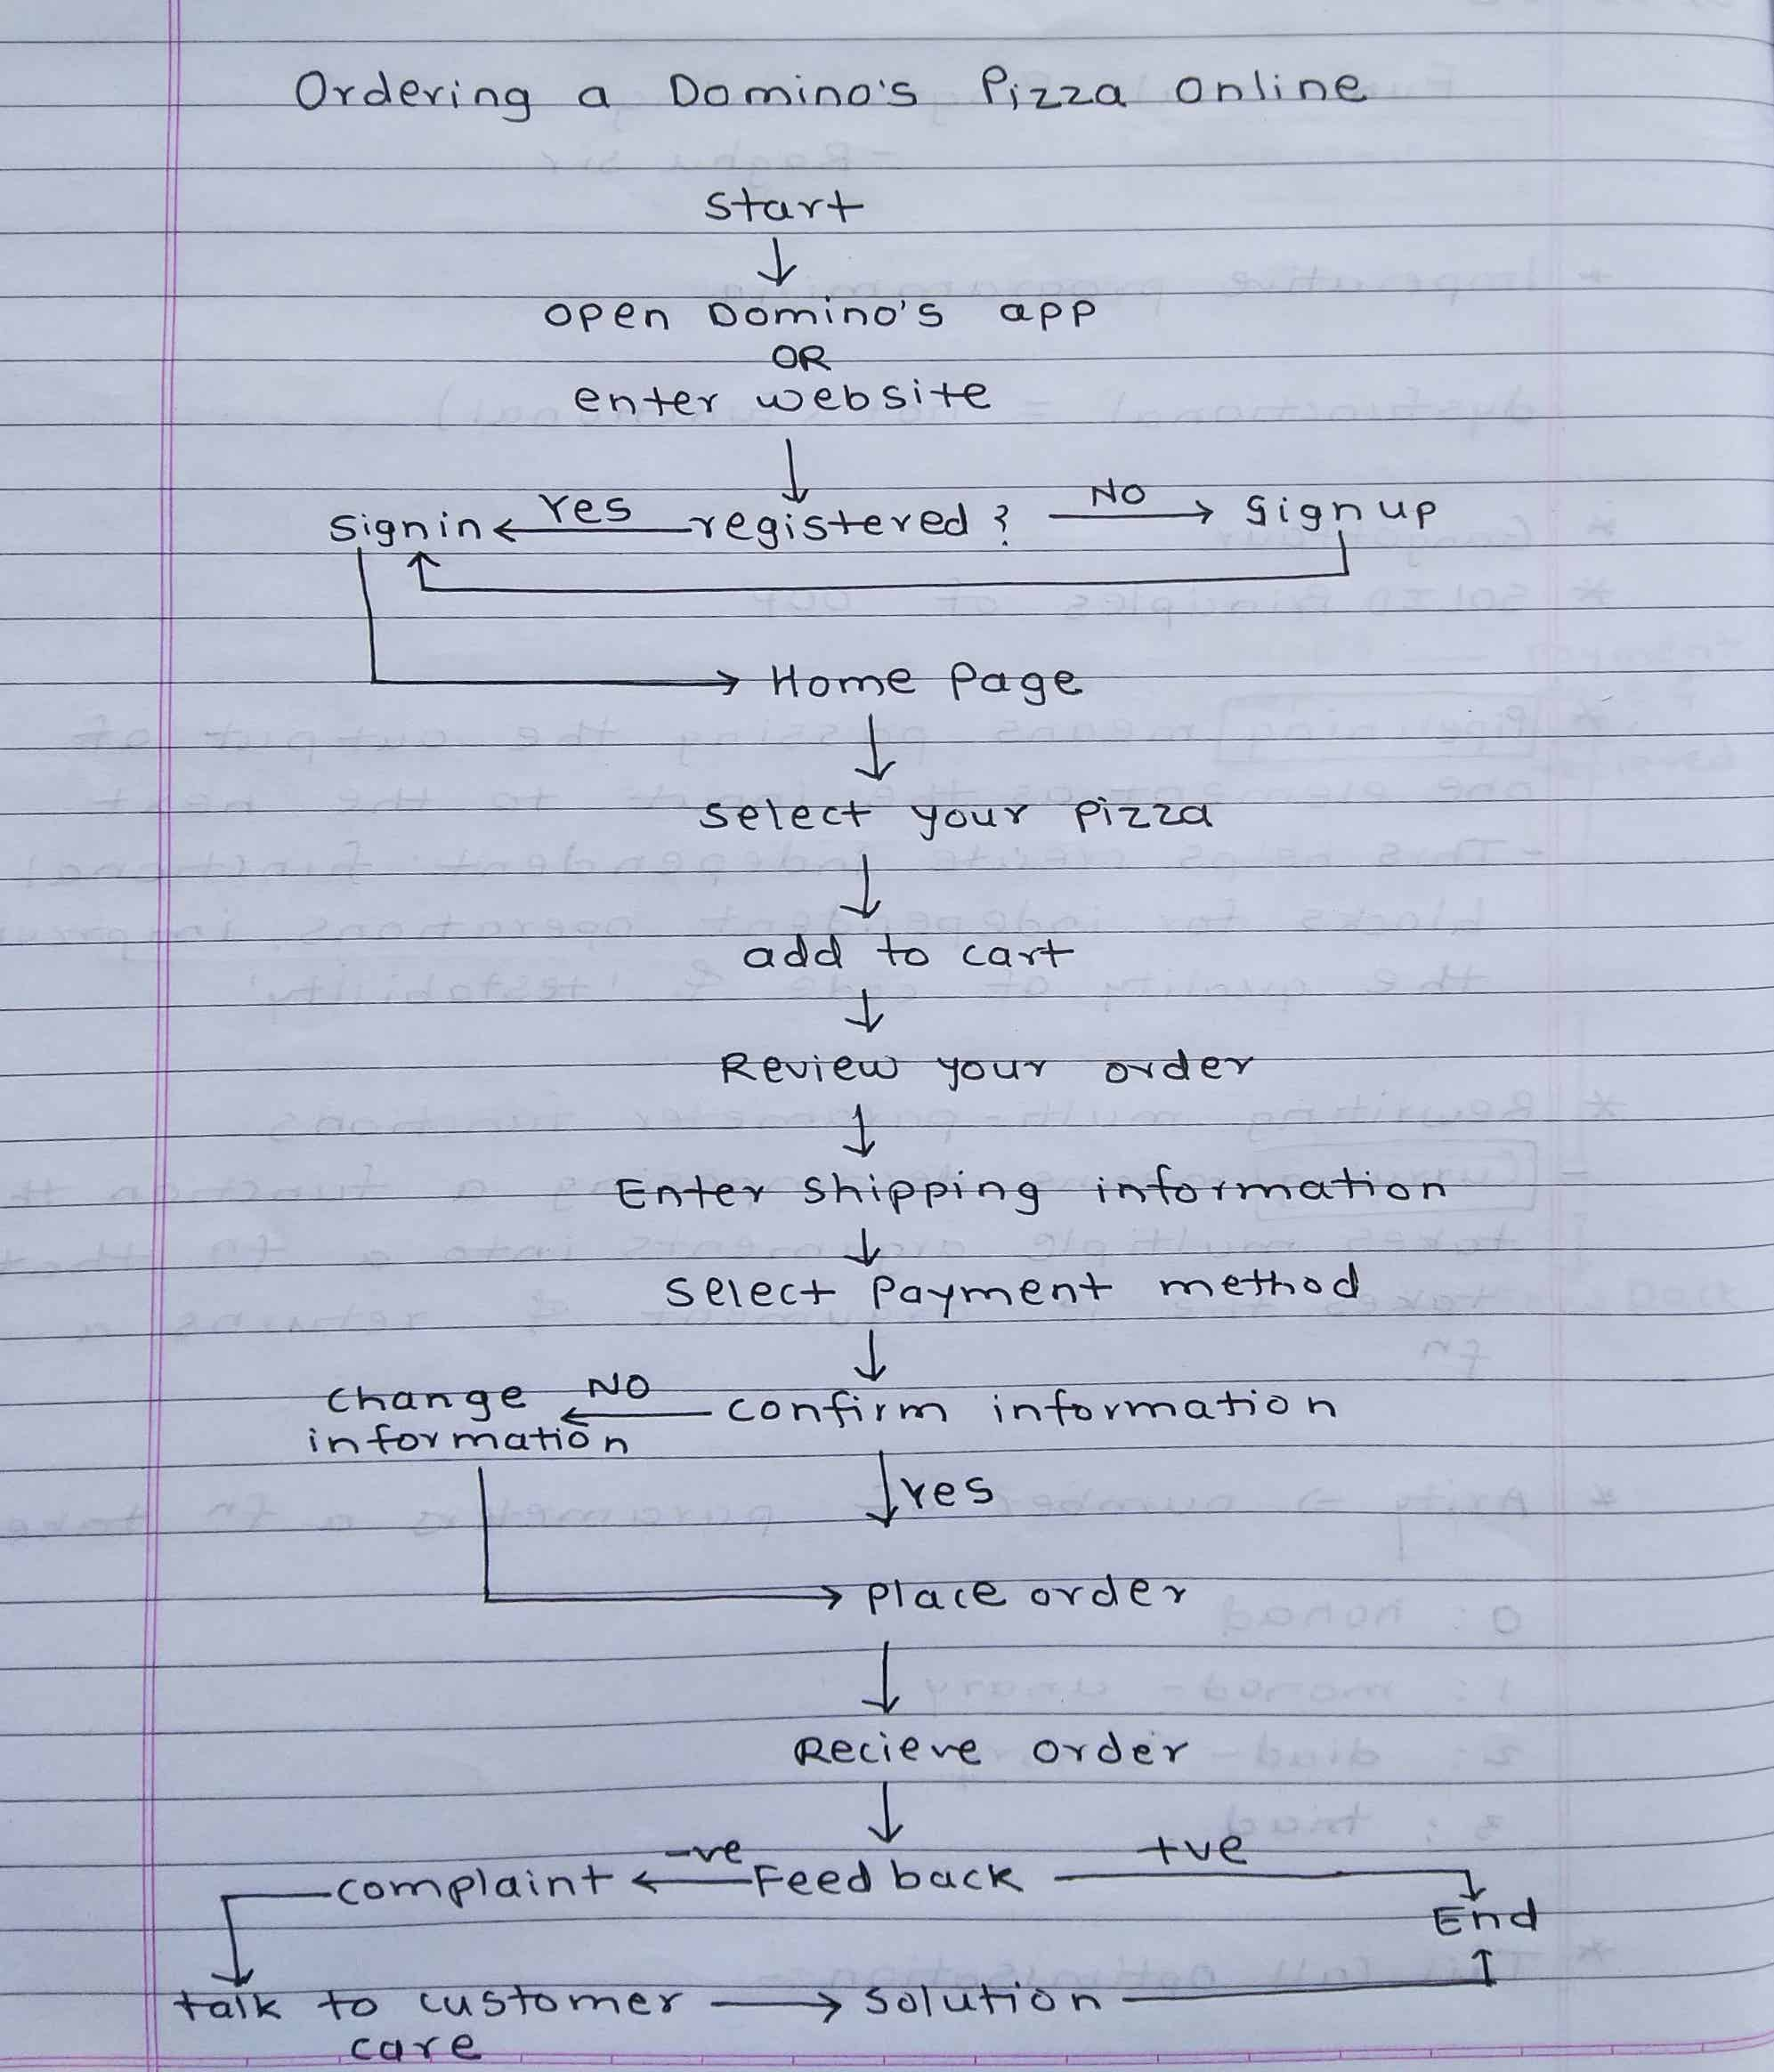 Ordering a Domino's Pizza Online
start
open Domino's app
OR
enter website
Signin Yes registered? No Signup
Home Page
select your pizza
add to cart
Review your order
Enter shipping information
select payment method
change No confirm information
information
Yes
place order
Recieve order
complaint -ve Feedback +ve
End
talk to customer solution
care